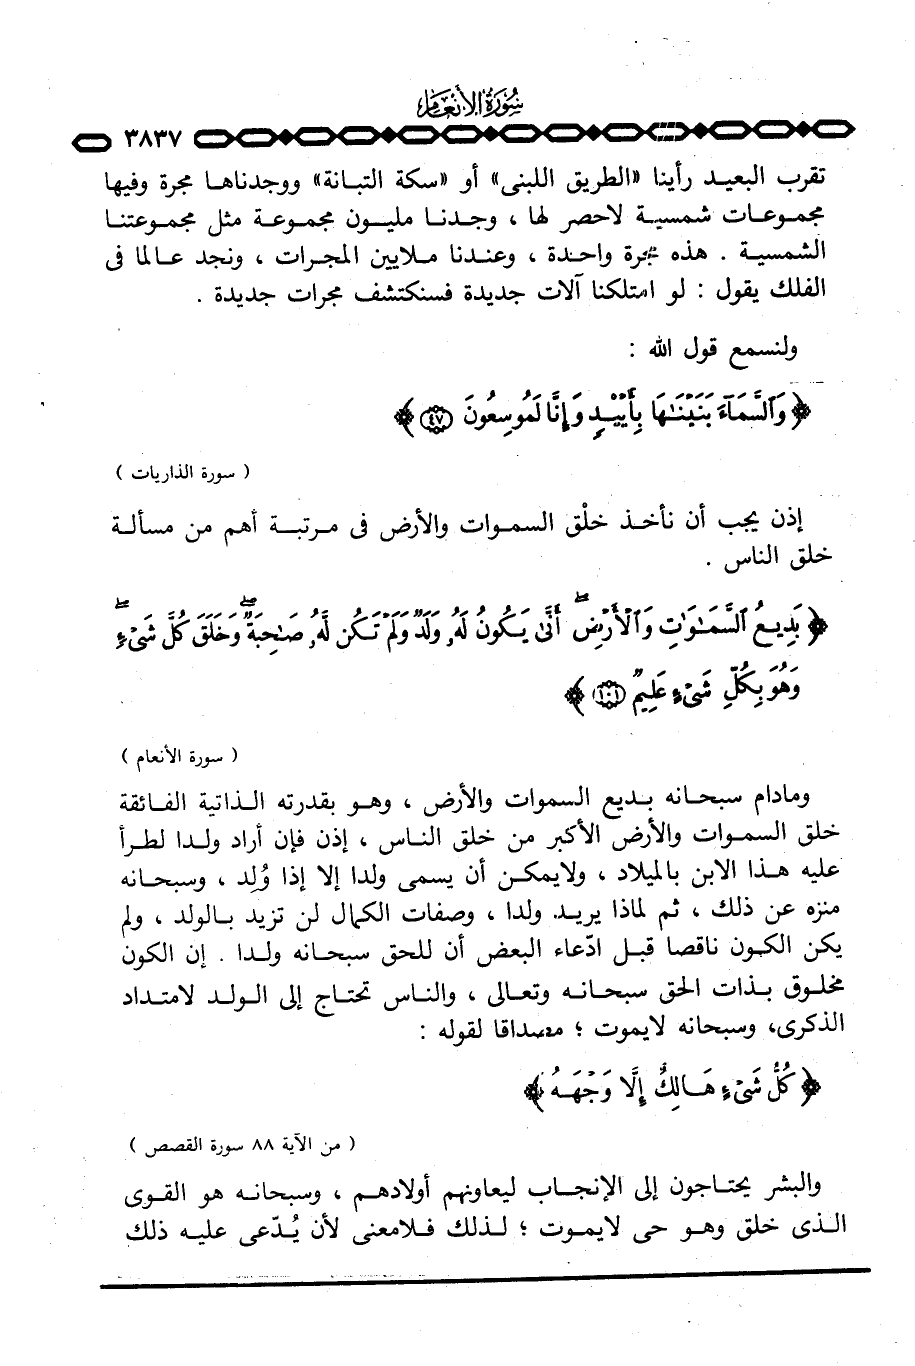 سُورَةُ الأَنْعَامِ
٣٨٣٧
تقرب البعيد رأينا «الطريق اللبنى» أو «سكة التبانة» ووجدناها مجرة وفيها
مجموعات شمسية لاحصر لها ، وجدنا مليون مجموعة مثل مجموعتنا
الشمسية . هذه مجرة واحدة ، وعندنا ملايين المجرات ، ونجد عالما فى
الفلك يقول : لو امتلكنا آلات جديدة فسنكتشف مجرات جديدة .
ولنسمع قول الله :
﴿ وَٱلسَّمَآءَ بَنَيْنَٰهَا بِأَيْي۟دٍ وَإِنَّا لَمُوسِعُونَ ٤٧ ﴾
( سورة الذاريات )
إذن يجب أن نأخذ خلْق السموات والأرض فى مرتبة أهم من مسألة
خلق الناس .
﴿ بَدِيعُ ٱلسَّمَٰوَٰتِ وَٱلْأَرْضِ ۖ أَنَّىٰ يَكُونُ لَهُۥ وَلَدٌ وَلَمْ تَكُن لَّهُۥ صَٰحِبَةٌ ۖ وَخَلَقَ كُلَّ شَىْءٍ ۖ
وَهُوَ بِكُلِّ شَىْءٍ عَلِيمٌ ١٠١ ﴾
( سورة الأنعام )
ومادام سبحانه بديع السموات والأرض ، وهو بقدرته الذاتية الفائقة
خلق السموات والأرض الأكبر من خلق الناس ، إذن فإن أراد ولدا لطرأ
عليه هذا الابن بالميلاد ، ولايمكن أن يسمى ولدا إلا إذا وُلِد ، وسبحانه
منزه عن ذلك ، ثم لماذا يريد ولدا ، وصفات الكمال لن تزيد بالولد ، ولم
يكن الكون ناقصا قبل ادّعاء البعض أن للحق سبحانه ولدا . إن الكون
مخلوق بذات الحق سبحانه وتعالى ، والناس تحتاج إلى الولد لامتداد
الذكرى، وسبحانه لايموت ؛ مصداقا لقوله :
﴿ كُلُّ شَىْءٍ هَالِكٌ إِلَّا وَجْهَهُ ﴾
( من الآية ٨٨ سورة القصص )
والبشر يحتاجون إلى الإنجاب ليعاونهم أولادهم ، وسبحانه هو القوى
الذى خلق وهو حى لايموت ؛ لذلك فلامعنى لأن يُدّعى عليه ذلك